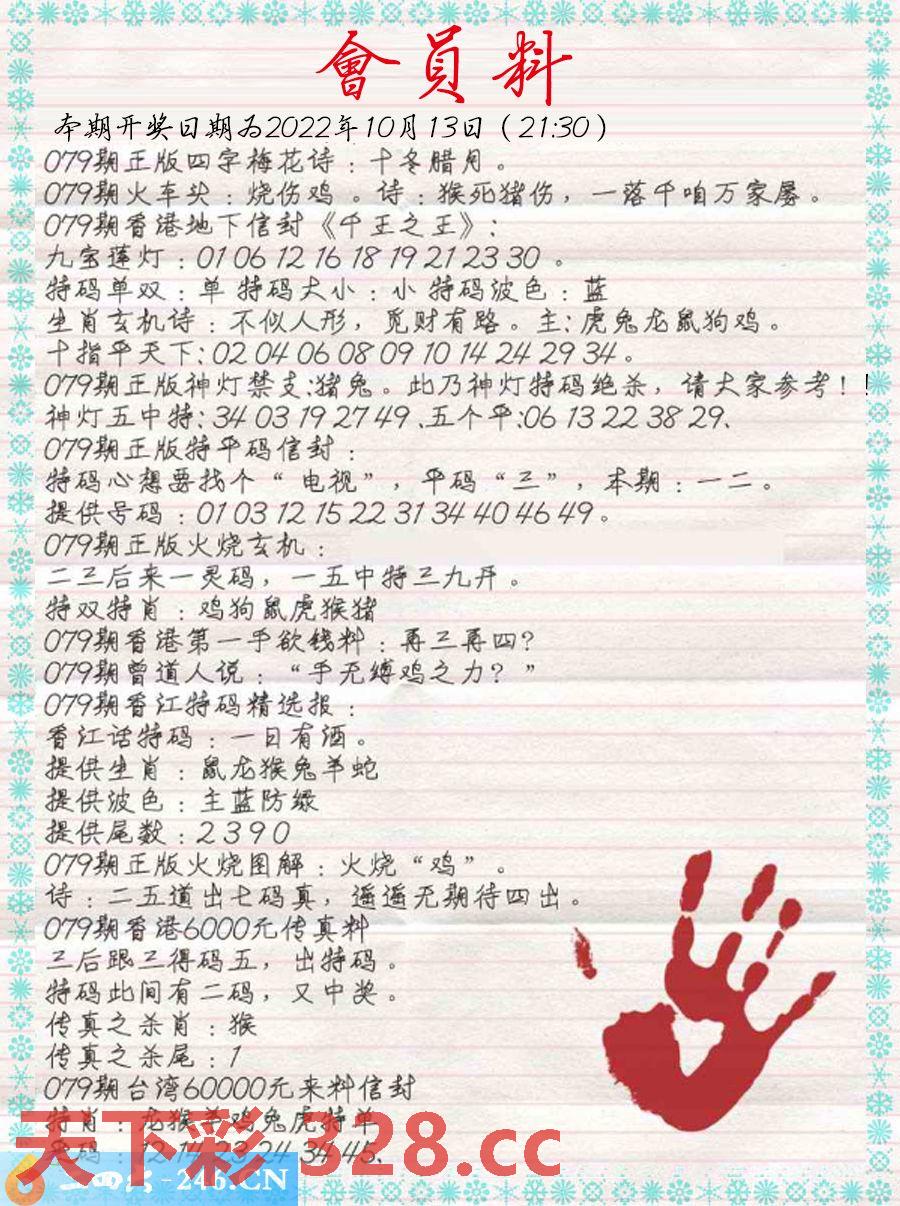 會員料
本期开奖日期为2022年10月13日（21:30）
079期正版四字梅花诗：十冬腊月。
079期火车头：烧伤鸡 。诗：猴死猪伤，一落千咱万家屡。
079期香港地下信封《千王之王》:
九宝莲灯：01 06 12 16 18 19 21 23 30 。
特码单双：单 特码大小：小 特码波色：蓝
生肖玄机诗：不似人形，觅财有路。主: 虎兔龙鼠狗鸡。
十指平天下: 02 04 06 08 09 10 14 24 29 34。
079期正版神灯禁支:猪兔。此乃神灯特码绝杀，请大家参考！！
神灯五中特: 34 03 19 27 49 、五个平:06 13 22 38 29、
079期正版特平码信封：
特码心想要找个“ 电视”，平码“三”，本期：一二。
提供号码：01 03 12 15 22 31 34 40 46 49。
079期正版火烧玄机：
二三后来一灵码，一五中特三九开。
特双特肖：鸡狗鼠虎猴猪
079期香港第一手欲钱料：再三再四？
079期曾道人说：“手无缚鸡之力？”
079期香江特码精选报：
香江话特码：一日有酒。
提供生肖：鼠龙猴兔羊蛇
提供波色：主蓝防绿
提供尾数：2 3 9 0
079期正版火烧图解：火烧“鸡”。
诗：二五道出七码真，遥遥无期待四出。
079期香港6000元传真料
三后跟三得码五，出特码。
特码此间有二码，又中奖。
传真之杀肖：猴
传真之杀尾：1
079期台湾60000元来料信封
特肖：龙猴羊鸡兔虎特单
码：12 14 23 24 34 45、
天下彩 328.cc
-246.CN